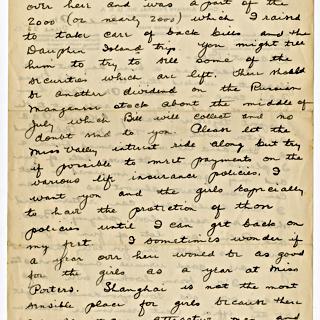 over here and was a part of the
2000 (or nearly 2000) which I raised
to take care of back bills and the
Dauphin Island trip. You might tell
him to try to sell some of the
securities which are left. There should
be another dividend on the Russian
Manganese stock about the middle of
July which Bill will collect and no
doubt send to you. Please let the
Miss Valley interest ride along but try
if possible to meet payments on the
various life insurance policies. I
want you and the girls especially
to have the protection of those
policies until I can get back on
my feet. I sometimes wonder if
a year over here would be as good
for the girls as a year at Miss
Porters. Shanghai is not the most
sensible place for girls because there
attractive men and